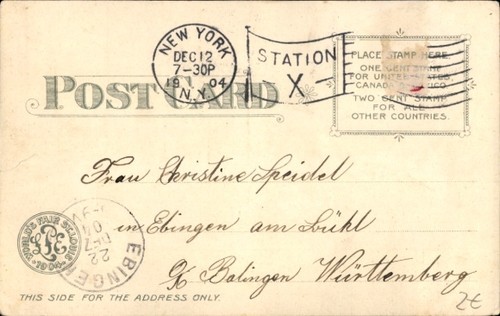 NEW YORK
DEC 12
7-30P
1904
N.Y.
STATION
X
POST CARD
PLACE STAMP HERE
ONE CENT STAMP
FOR UNITED STATES,
CANADA MEXICO
TWO CENT STAMP
FOR ALL
OTHER COUNTRIES.
Frau Christine Speidel
in Ebingen am Bühl
Balingen Württemberg
WORLD'S FAIR ST. LOUIS
1904
EBINGE
22
DEZ
04
THIS SIDE FOR THE ADDRESS ONLY.
2€